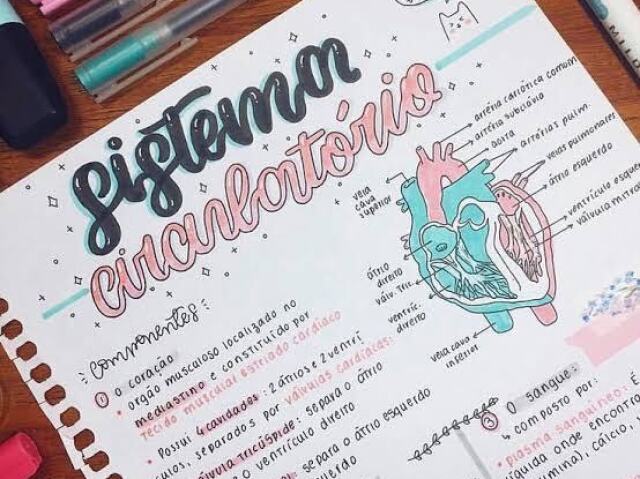 sistema
circulatório
artéria carótica comum
artéria subclávia
aorta
artérias pulm.
veias pulmonares
átrio esquerdo
ventrículo esque
válvula mitra
veia
cava
superior
átrio
direito
válv. tric.
ventríc.
direito
veia cava
inferior
componentes
① o coração
• órgão musculoso localizado no
mediastino e constituído por
tecido muscular estriado cardíaco
• Possui 4 cavidades: 2 átrios e 2 ventrí
culos, separados por válvulas cardíacas:
válvula tricúspide: separa o átrio
o ventrículo direito
separa o átrio esquerdo
querdo
③ O sangue:
↳ composto por:
• plasma sanguíneo: É
líquida onde encontra
umina), cálcio,